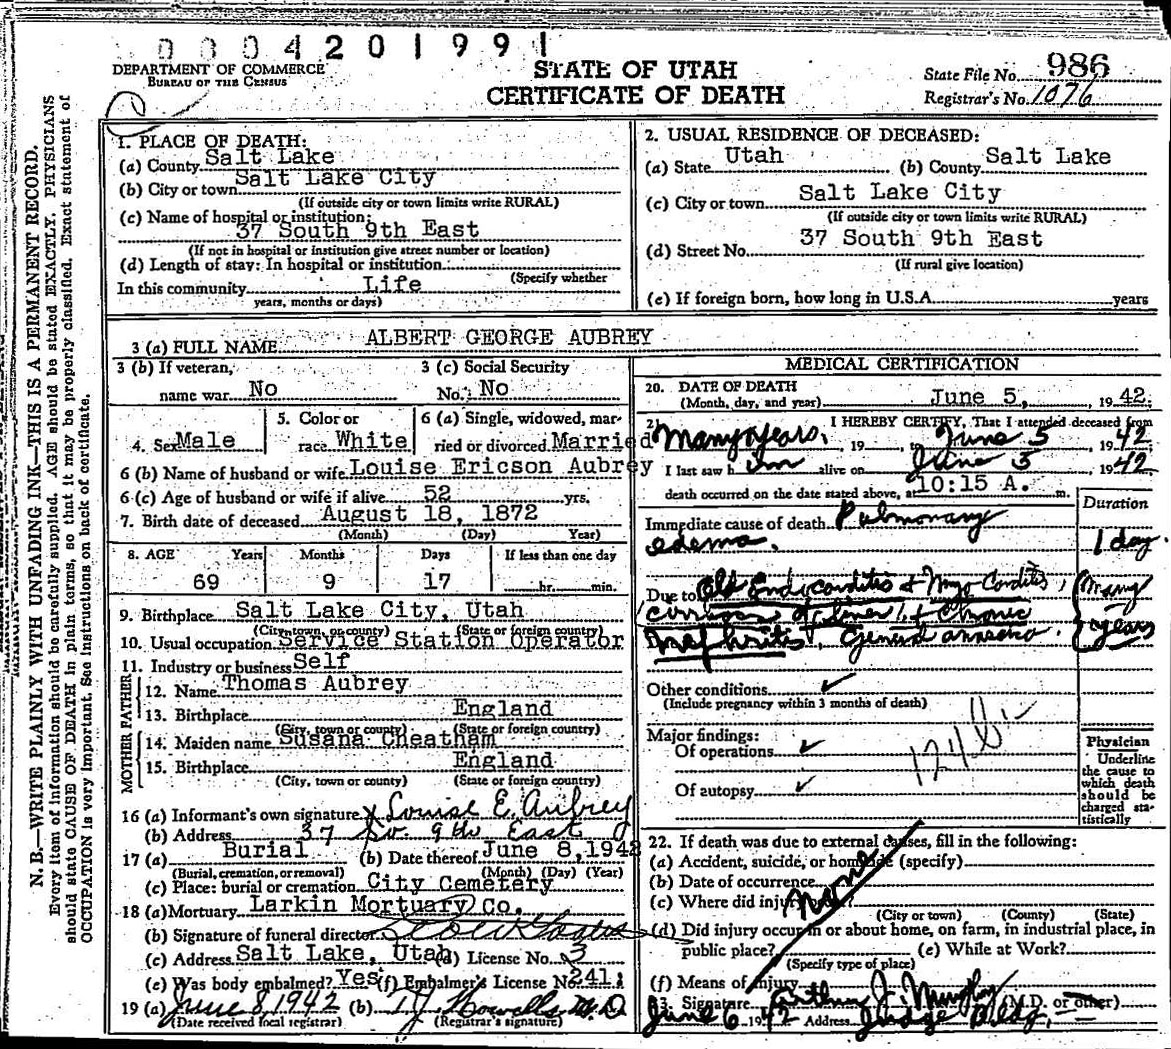 0004201991
DEPARTMENT OF COMMERCE
BUREAU OF THE CENSUS
STATE OF UTAH
CERTIFICATE OF DEATH
State File No. 986
Registrar's No. 1076
N. B.—WRITE PLAINLY WITH UNFADING INK—THIS IS A PERMANENT RECORD.
Every item of information should be carefully supplied. AGE should be stated EXACTLY. PHYSICIANS
should state CAUSE OF DEATH in plain terms, so that it may be properly classified. Exact statement of
OCCUPATION is very important. See instructions on back of certificate.
1. PLACE OF DEATH:
(a) County Salt Lake
(b) City or town Salt Lake City
(If outside city or town limits write RURAL)
(c) Name of hospital or institution:
37 South 9th East
(If not in hospital or institution give street number or location)
(d) Length of stay: In hospital or institution
(Specify whether
In this community Life
years, months or days)
2. USUAL RESIDENCE OF DECEASED:
(a) State Utah (b) County Salt Lake
(c) City or town Salt Lake City
(If outside city or town limits write RURAL)
(d) Street No. 37 South 9th East
(If rural give location)
(e) If foreign born, how long in U.S.A. years
3 (a) FULL NAME ALBERT GEORGE AUBREY
3 (b) If veteran, 3 (c) Social Security
name war No No. No
4. Sex Male 5. Color or race White 6 (a) Single, widowed, married or divorced Married
6 (b) Name of husband or wife Louise Ericson Aubrey
6 (c) Age of husband or wife if alive 52 yrs.
7. Birth date of deceased August 18, 1872
(Month) (Day) Year)
8. AGE Years Months Days If less than one day
69 9 17 hr. min.
9. Birthplace Salt Lake City, Utah
(City, town, or county) (State or foreign country)
10. Usual occupation Service Station Operator
11. Industry or business Self
FATHER
12. Name Thomas Aubrey
13. Birthplace England
(City, town or county) (State or foreign country)
MOTHER
14. Maiden name Susana Cheatham
15. Birthplace England
(City, town or county) (State or foreign country)
16 (a) Informant's own signature x Louise E. Aubrey
(b) Address 37 So. 9th East
17 (a) Burial (b) Date thereof June 8, 1942
(Burial, cremation, or removal) (Month) (Day) (Year)
(c) Place: burial or cremation City Cemetery
18 (a) Mortuary Larkin Mortuary Co.
(b) Signature of funeral director
(c) Address Salt Lake, Utah (d) License No. 3
(e) Was body embalmed? Yes (f) Embalmer's License No. 241
19 (a) June 8, 1942 (b) T J Howells M.D
(Date received local registrar) (Registrar's signature)
MEDICAL CERTIFICATION
20. DATE OF DEATH
(Month, day, and year) June 5, 1942
21. I HEREBY CERTIFY, That I attended deceased from
Many years, 19 to June 5 1942
I last saw him alive on June 5 1942
death occurred on the date stated above, at 10:15 A. m.
Duration
Immediate cause of death Pulmonary
edema. 1 day.
Due to Old Endocarditis & Myo Carditis,
cirrhosis of liver, & Chronic
Nephritis, General anasarca. many years
Other conditions ✓
(Include pregnancy within 3 months of death)
Major findings:
Of operations ✓
Of autopsy ✓
124 b
Physician
Underline
the cause to
which death
should be
charged sta-
tistically
22. If death was due to external causes, fill in the following:
(a) Accident, suicide, or homicide (specify)
(b) Date of occurrence
(c) Where did injury occur?
(City or town) (County) (State)
(d) Did injury occur in or about home, on farm, in industrial place, in
public place? (e) While at Work?
(Specify type of place)
(f) Means of injury
None
23. Signature Arthur J. Murphy (M.D. or other)
June 6 1942 Address Judge Bldg.